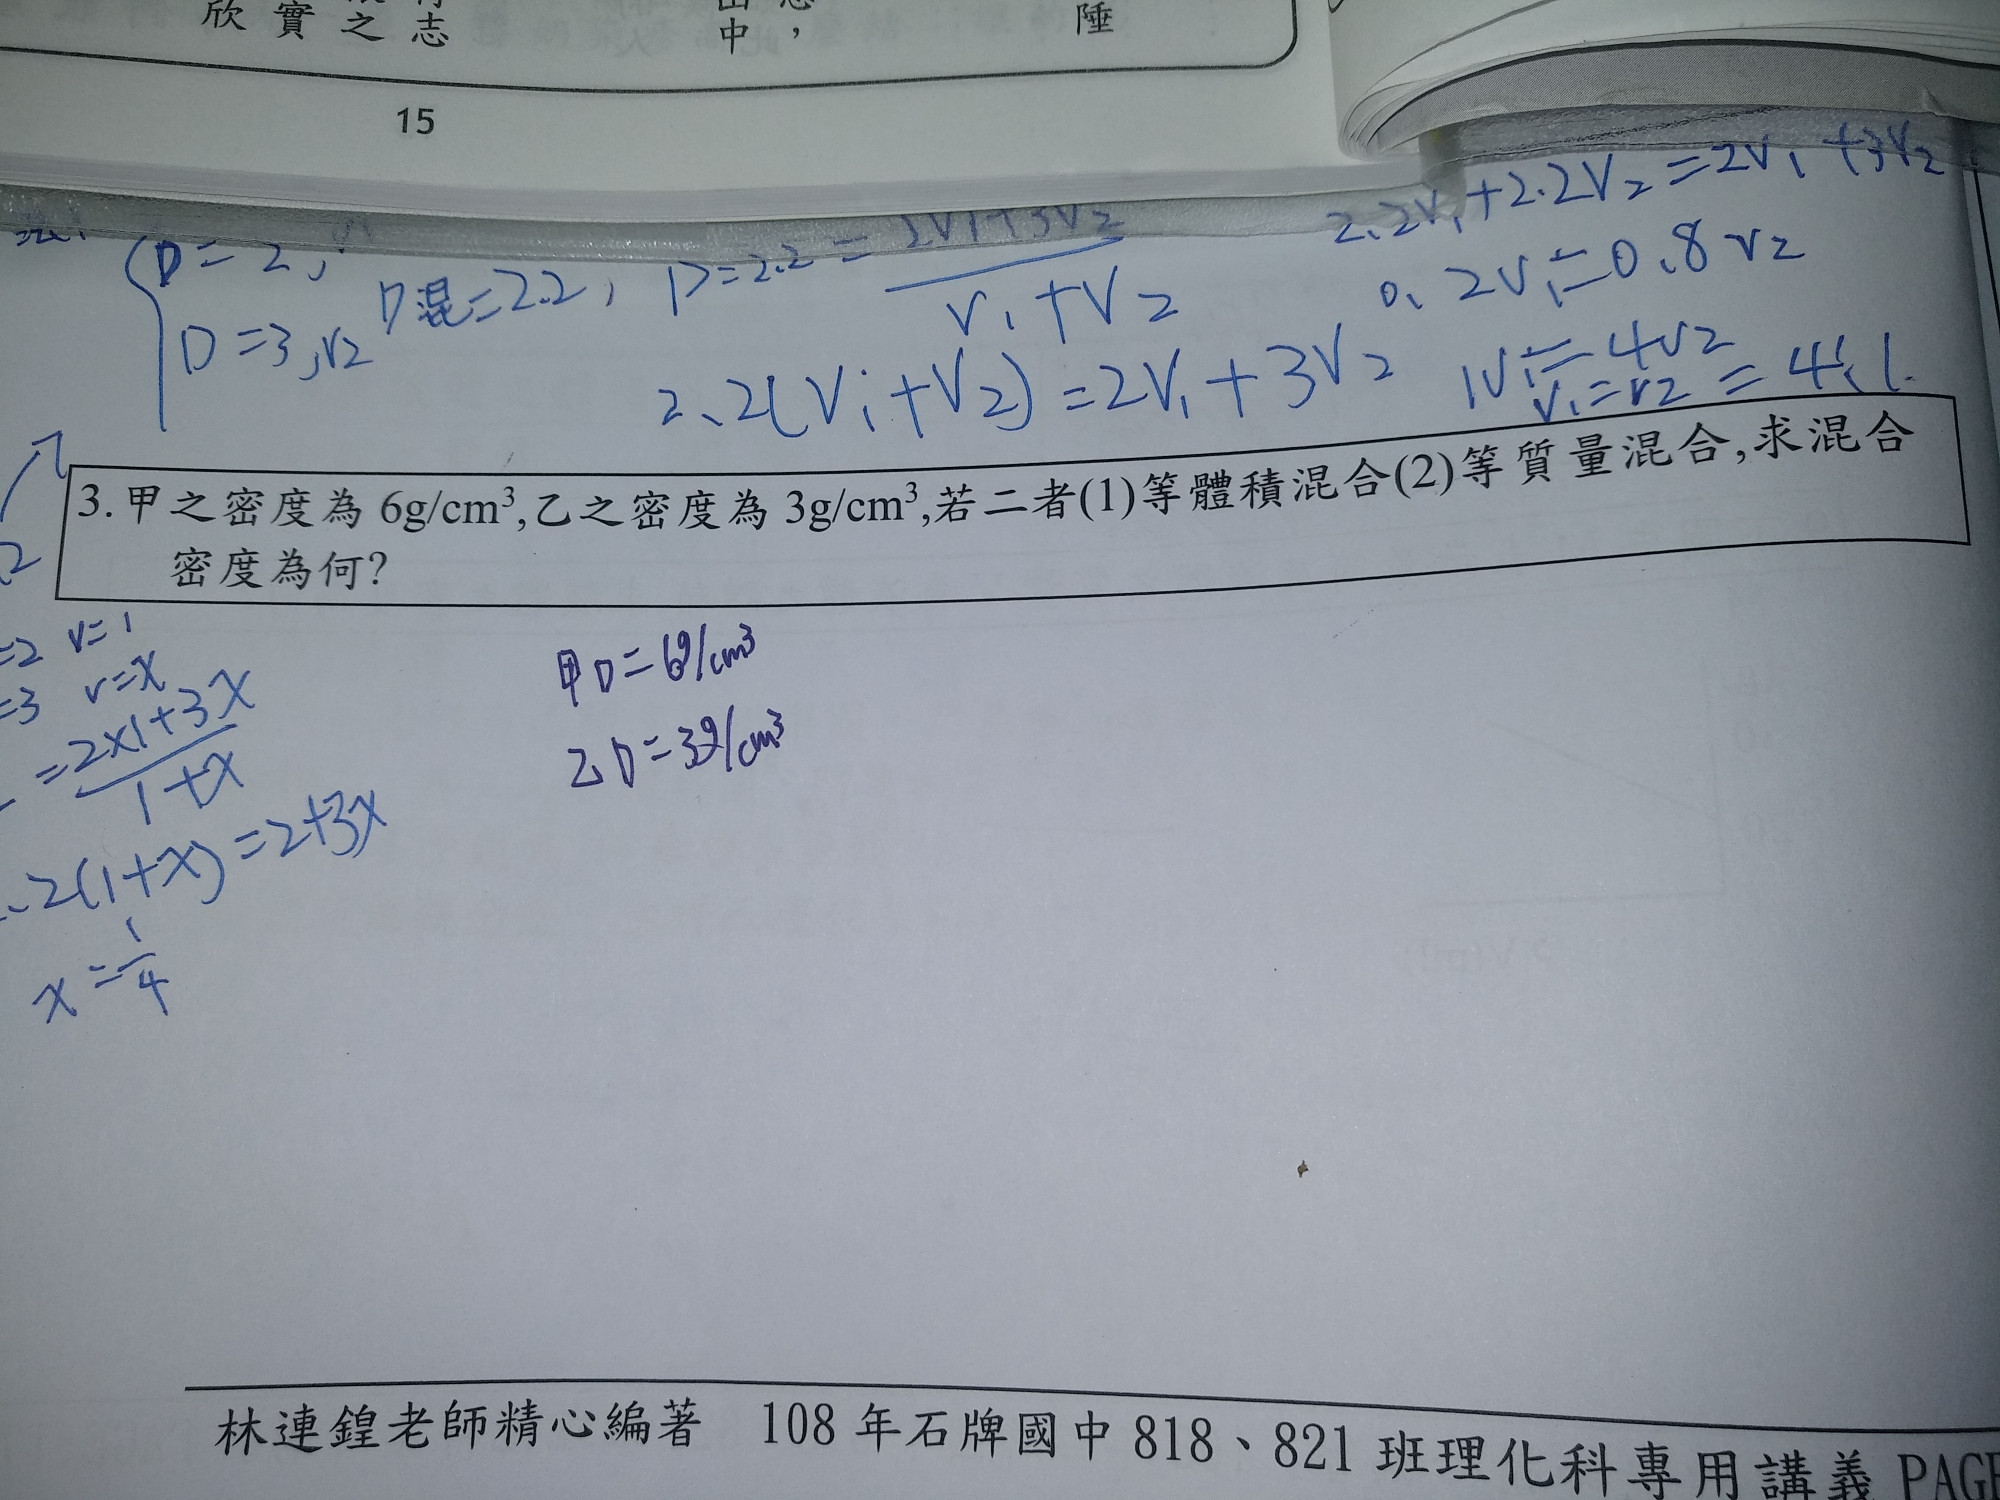 欣 實 之 志 中 , 陲
15
2.2V₁+2.2V₂=2V₁+3V₂
D=2,
D混=2.2, D=2.2=2V1+3V2/V₁+V₂
0.2V₁=0.8V2
D=3,V2
2.2(V₁+V2)=2V₁+3V2
1V₁=4V2
V₁=V2=4:1.
3.甲之密度為 6g/cm³,乙之密度為 3g/cm³,若二者(1)等體積混合(2)等質量混合,求混合
密度為何?
=2 V=1
=3 V=x
=2x1+3x/1+x
2(1+x)=2+3x
x=1/4
甲D=6g/cm³
乙D=3g/cm³
林連鍠老師精心編著 108 年石牌國中 818、821 班理化科專用講義 PAGE